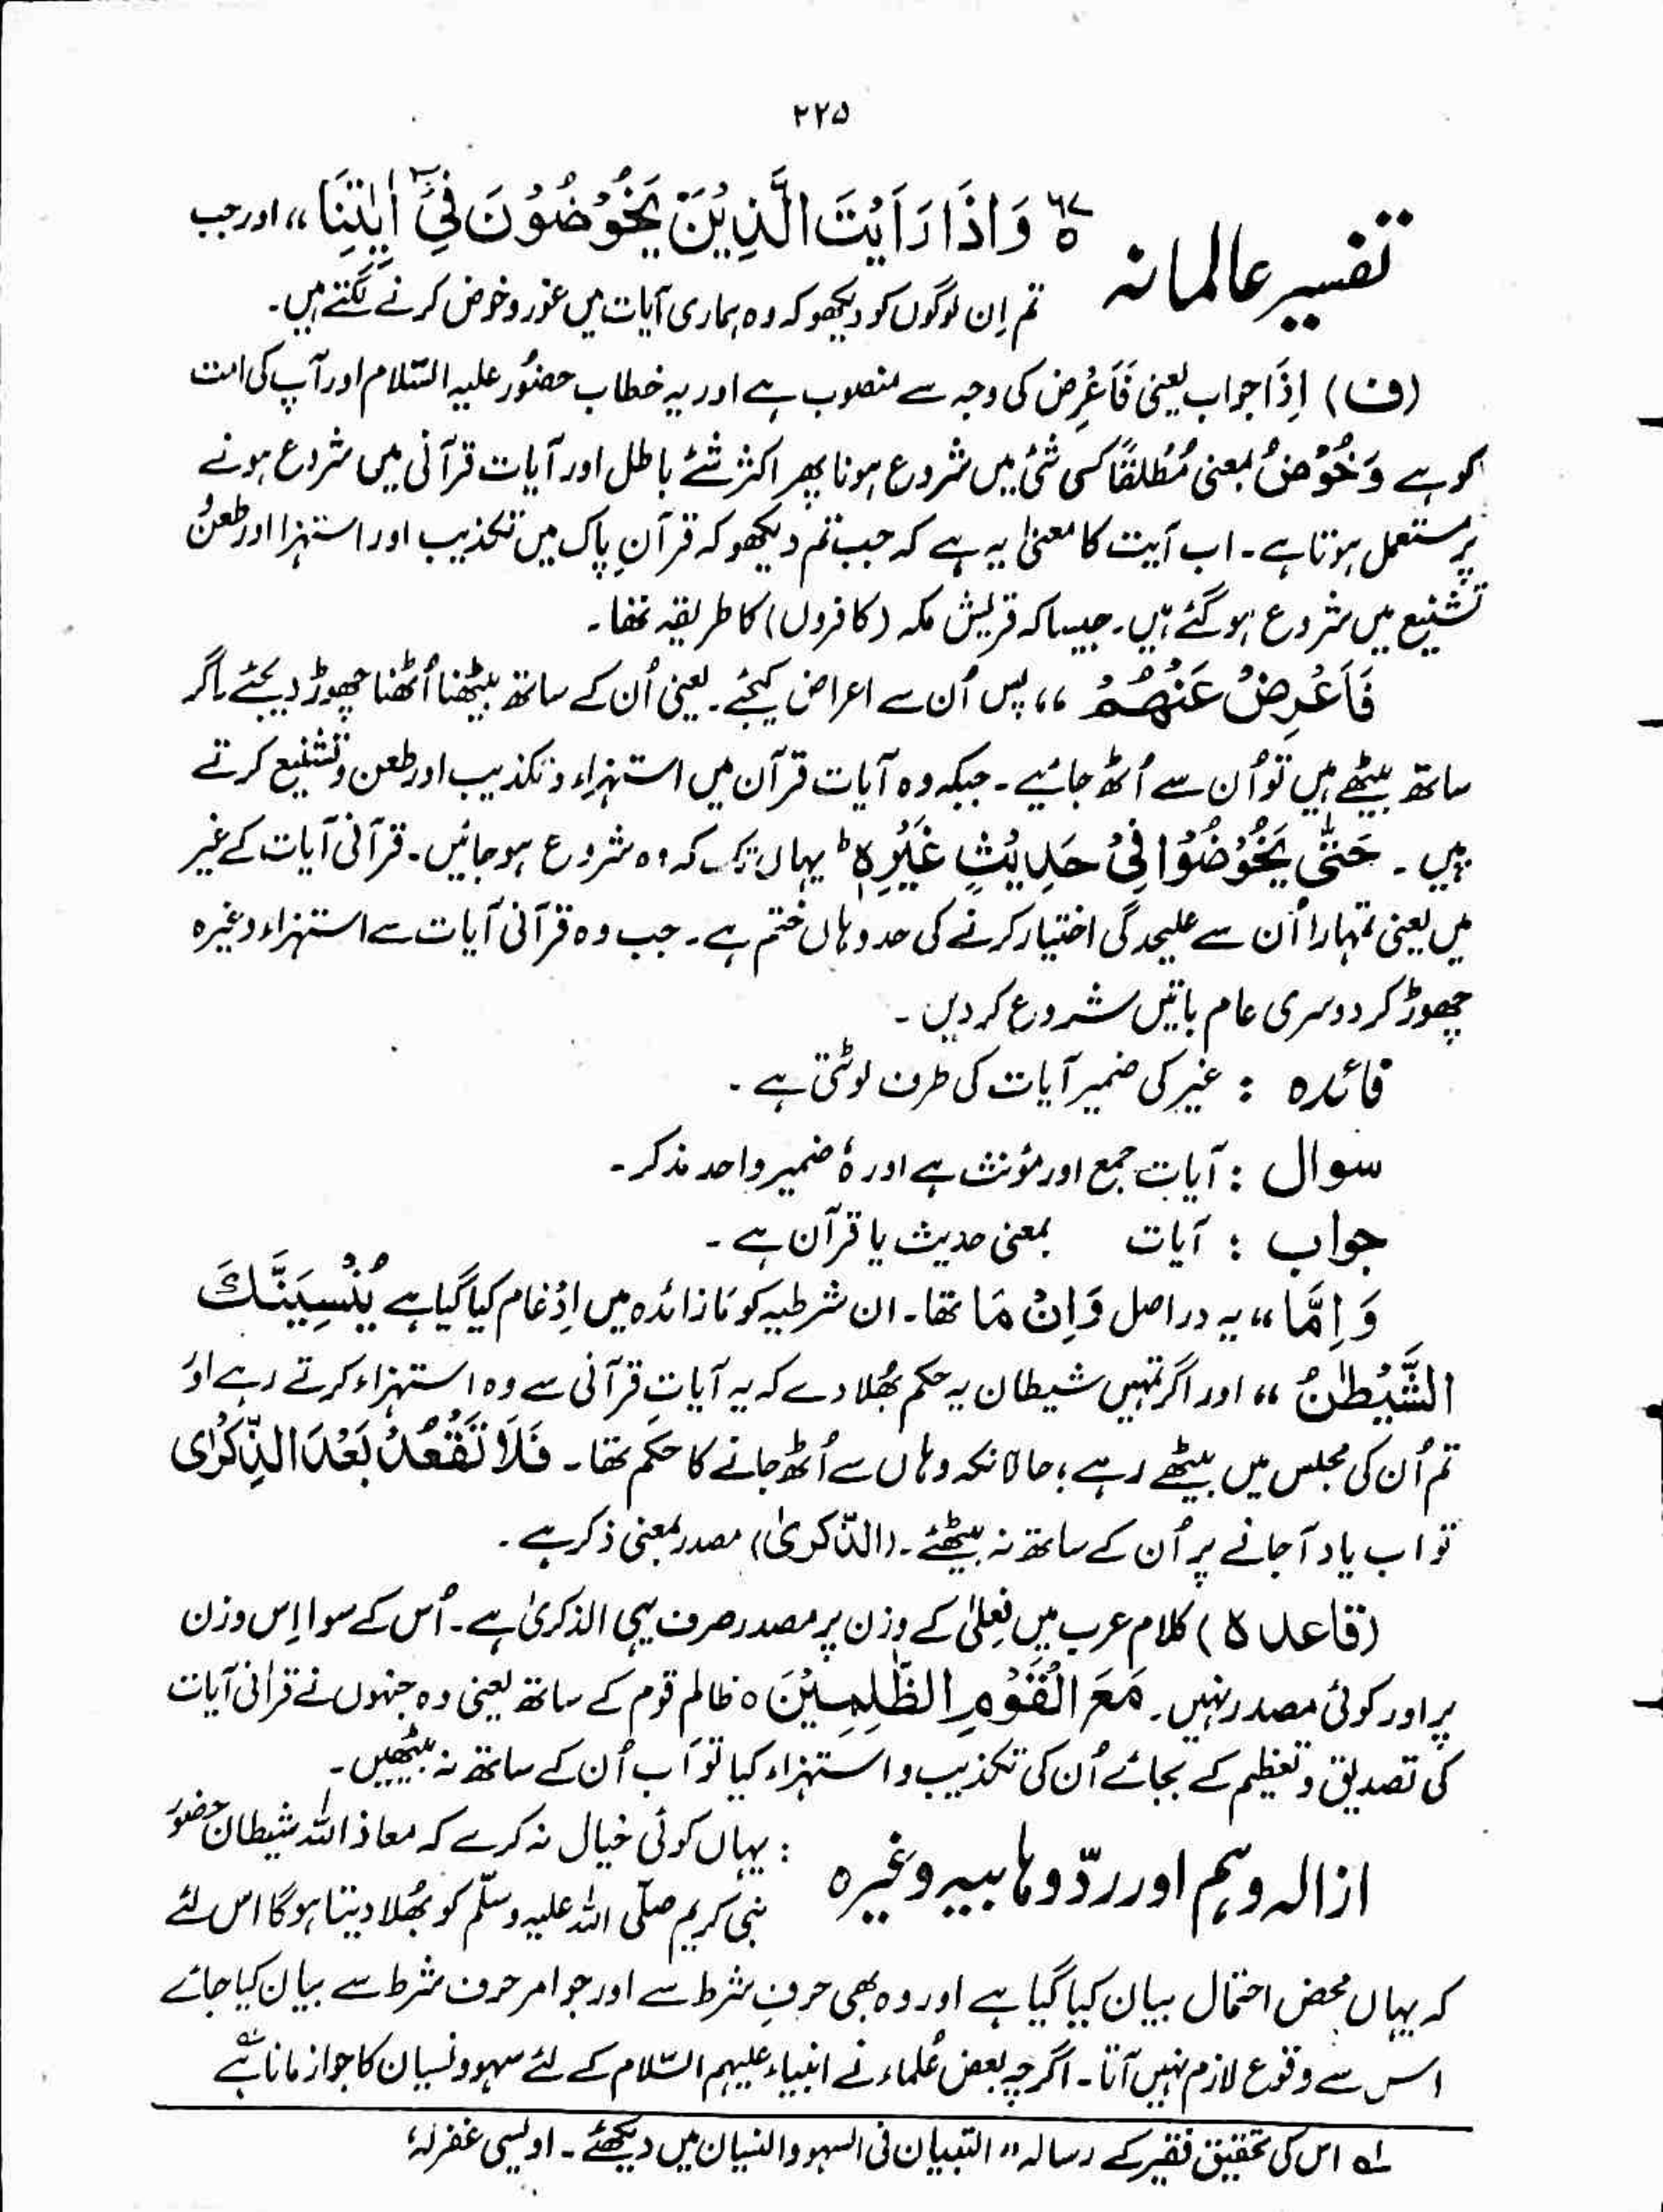 ۲۲۵
تفسیر عالمانہ
۶۷ ۵ وَاِذَا رَاَيْتَ الَّذِيْنَ يَخُوْضُوْنَ فِيْٓ اٰيٰتِنَا ،، اور جب
تم اِن لوگوں کو دیکھو کہ وہ ہماری آیات میں غور و خوض کرنے لگتے ہیں۔
(ف) اِذَا جواب یعنی فَاَعْرِض کی وجہ سے منصوب ہے اور یہ خطاب حضُور علیہ السّلام اور آپ کی امت
کو ہے وَخُوْضُ بمعنی مُطْلَقًا کسی شئ میں شروع ہونا پھر اکثر شئے باطل اور آیات قرآنی میں شروع ہونے
پر مستعمل ہوتا ہے۔ اب آیت کا معنیٰ یہ ہے کہ جب تم دیکھو کہ قرآنِ پاک میں تکذیب اور استہزا اور طعن
تشنیع میں شروع ہو گئے ہیں۔ جیسا کہ قریش مکہ (کافروں) کا طریقہ تھا۔
فَاَعْرِضْ عَنْهُمْ ،، پس اُن سے اعراض کیجئے۔ یعنی اُن کے ساتھ بیٹھنا اُٹھنا چھوڑ دیجئے اگر
ساتھ بیٹھے ہیں تو اُن سے اُٹھ جائیے۔ جبکہ وہ آیات قرآن میں استہزاء و تکذیب اور طعن و تشنیع کرتے
ہیں۔ حَتّٰى يَخُوْضُوْا فِيْ حَدِيْثٍ غَيْرِهٖ ؕ یہاں تک کہ وہ شروع ہو جائیں۔ قرآنی آیات کے غیر
میں یعنی تمہارا اُن سے علیحدگی اختیار کرنے کی حد وہاں ختم ہے۔ جب وہ قرآنی آیات سے استہزاء وغیرہ
چھوڑ کر دوسری عام باتیں شروع کر دیں۔
فائدہ : غیر کی ضمیر آیات کی طرف لوٹتی ہے۔
سوال : آیات جمع اور مؤنث ہے اور ہٗ ضمیر واحد مذکر۔
جواب : آیات بمعنی حدیث یا قرآن ہے۔
وَاِمَّا ،، یہ دراصل وَاِنْ مَا تھا۔ ان شرطیہ کو مَا زائدہ میں اِدْغام کیا گیا ہے يُنْسِيَنَّكَ
الشَّيْطٰنُ ،، اور اگر تمہیں شیطان یہ حکم بُھلا دے کہ یہ آیاتِ قرآنی سے وہ استہزاء کرتے رہے اور
تم اُن کی مجلس میں بیٹھے رہے، حالانکہ وہاں سے اُٹھ جانے کا حکم تھا۔ فَلَا تَقْعُدْ بَعْدَ الذِّكْرٰى
تو اب یاد آجانے پر اُن کے ساتھ نہ بیٹھئے۔ (الذّکریٰ) مصدر بمعنی ذکر ہے۔
(قاعدہ) کلام عرب میں فِعْلیٰ کے وزن پر مصدر صرف یہی الذکریٰ ہے۔ اُس کے سوا اِس وزن
پر اور کوئی مصدر نہیں۔ مَعَ الْقَوْمِ الظّٰلِمِيْنَ ۵ ظالم قوم کے ساتھ یعنی وہ جنہوں نے قرانی آیات
کی تصدیق و تعظیم کے بجائے اُن کی تکذیب و استہزاء کیا تو اَب اُن کے ساتھ نہ بیٹھیں۔
ازالہ وہم اور ردّ وہابیہ وغیرہ
: یہاں کوئی خیال نہ کرے کہ معاذ اللہ شیطان حضور
نبی کریم صلّی اللہ علیہ وسلّم کو بُھلا دیتا ہو گا اس لئے
کہ یہاں محض احتمال بیان کیا گیا ہے اور وہ بھی حرفِ شرط سے اور جو امر حرف شرط سے بیان کیا جائے
اس سے وقوع لازم نہیں آتا۔ اگرچہ بعض عُلماء نے انبیاء علیہم السّلام کے لئے سہو و نسیان کا جواز مانا ہے ؎۱
؎۱ اس کی تحقیق فقیر کے رسالہ ،، التبیان فی السہو والنسیان میں دیکھئے۔ اویسی غفرلہٗ